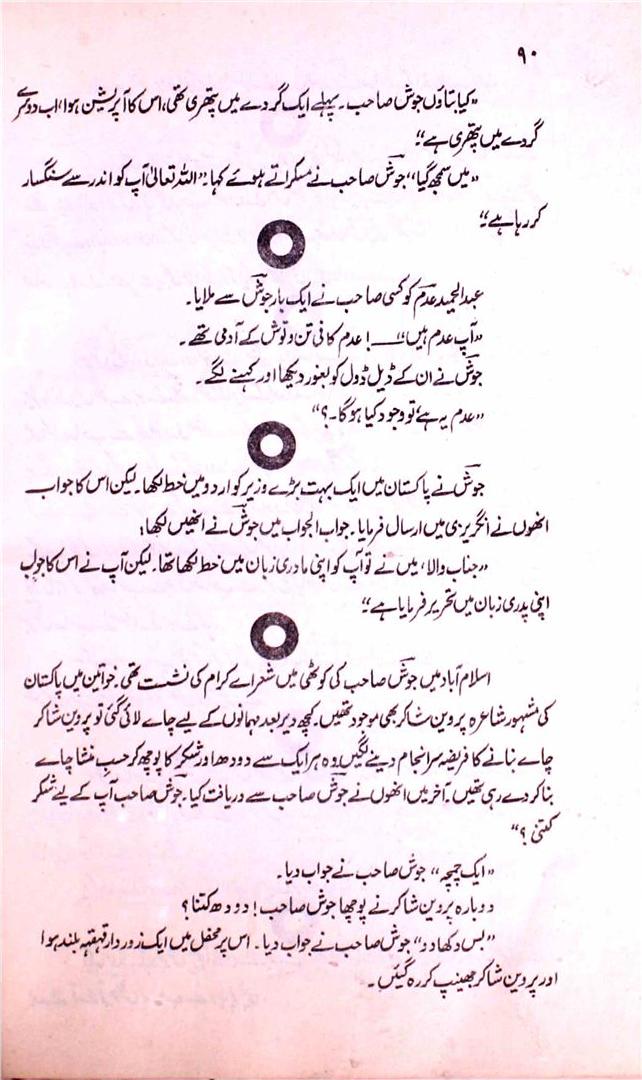 ۹۰
"کیا بتاؤں جوش صاحب۔ پہلے ایک گردے میں پتھری تھی، اس کا آپریشن ہوا، اب دوسرے
گردے میں پتھری ہے"۔
"میں سمجھ گیا" جوش صاحب نے مسکراتے ہوئے کہا۔ "اللہ تعالیٰ آپ کو اندر سے سنگسار
کر رہا ہے"۔
عبدالحمید عدم کو کسی صاحب نے ایک بار جوش سے ملایا۔
"آپ عدم ہیں" ــــ! عدم کافی تن و توش کے آدمی تھے۔
جوش نے ان کے ڈیل ڈول کو بغور دیکھا اور کہنے لگے۔
"عدم یہ ہے تو وجود کیا ہوگا۔؟"
جوش نے پاکستان میں ایک بہت بڑے وزیر کو اردو میں خط لکھا۔ لیکن اس کا جواب
انھوں نے انگریزی میں ارسال فرمایا۔ جواب الجواب میں جوش نے انھیں لکھا:
"جناب والا، میں نے تو آپ کو اپنی مادری زبان میں خط لکھا تھا۔ لیکن آپ نے اس کا جواب
اپنی پدری زبان میں تحریر فرمایا ہے"۔
اسلام آباد میں جوش صاحب کی کوٹھی میں شعراے کرام کی نشست تھی۔ خواتین میں پاکستان
کی مشہور شاعرہ پروین شاکر بھی موجود تھیں۔ کچھ دیر بعد مہمانوں کے لیے چاے لائی گئی تو پروین شاکر
چاے بنانے کا فریضہ سرانجام دینے لگیں۔ وہ ہر ایک سے دودھ اور شکر کا پوچھ کر حسبِ منشا چاے
بنا کر دے رہی تھیں۔ آخر میں انھوں نے جوش صاحب سے دریافت کیا۔ جوش صاحب آپ کے لیے شکر
کتنی؟"
"ایک چمچہ" جوش صاحب نے جواب دیا۔
دوبارہ پروین شاکر نے پوچھا جوش صاحب! دودھ کتنا؟
"بس دکھا دو" جوش صاحب نے جواب دیا۔ اس پر محفل میں ایک زوردار قہقہہ بلند ہوا
اور پروین شاکر جھینپ کر رہ گئیں۔